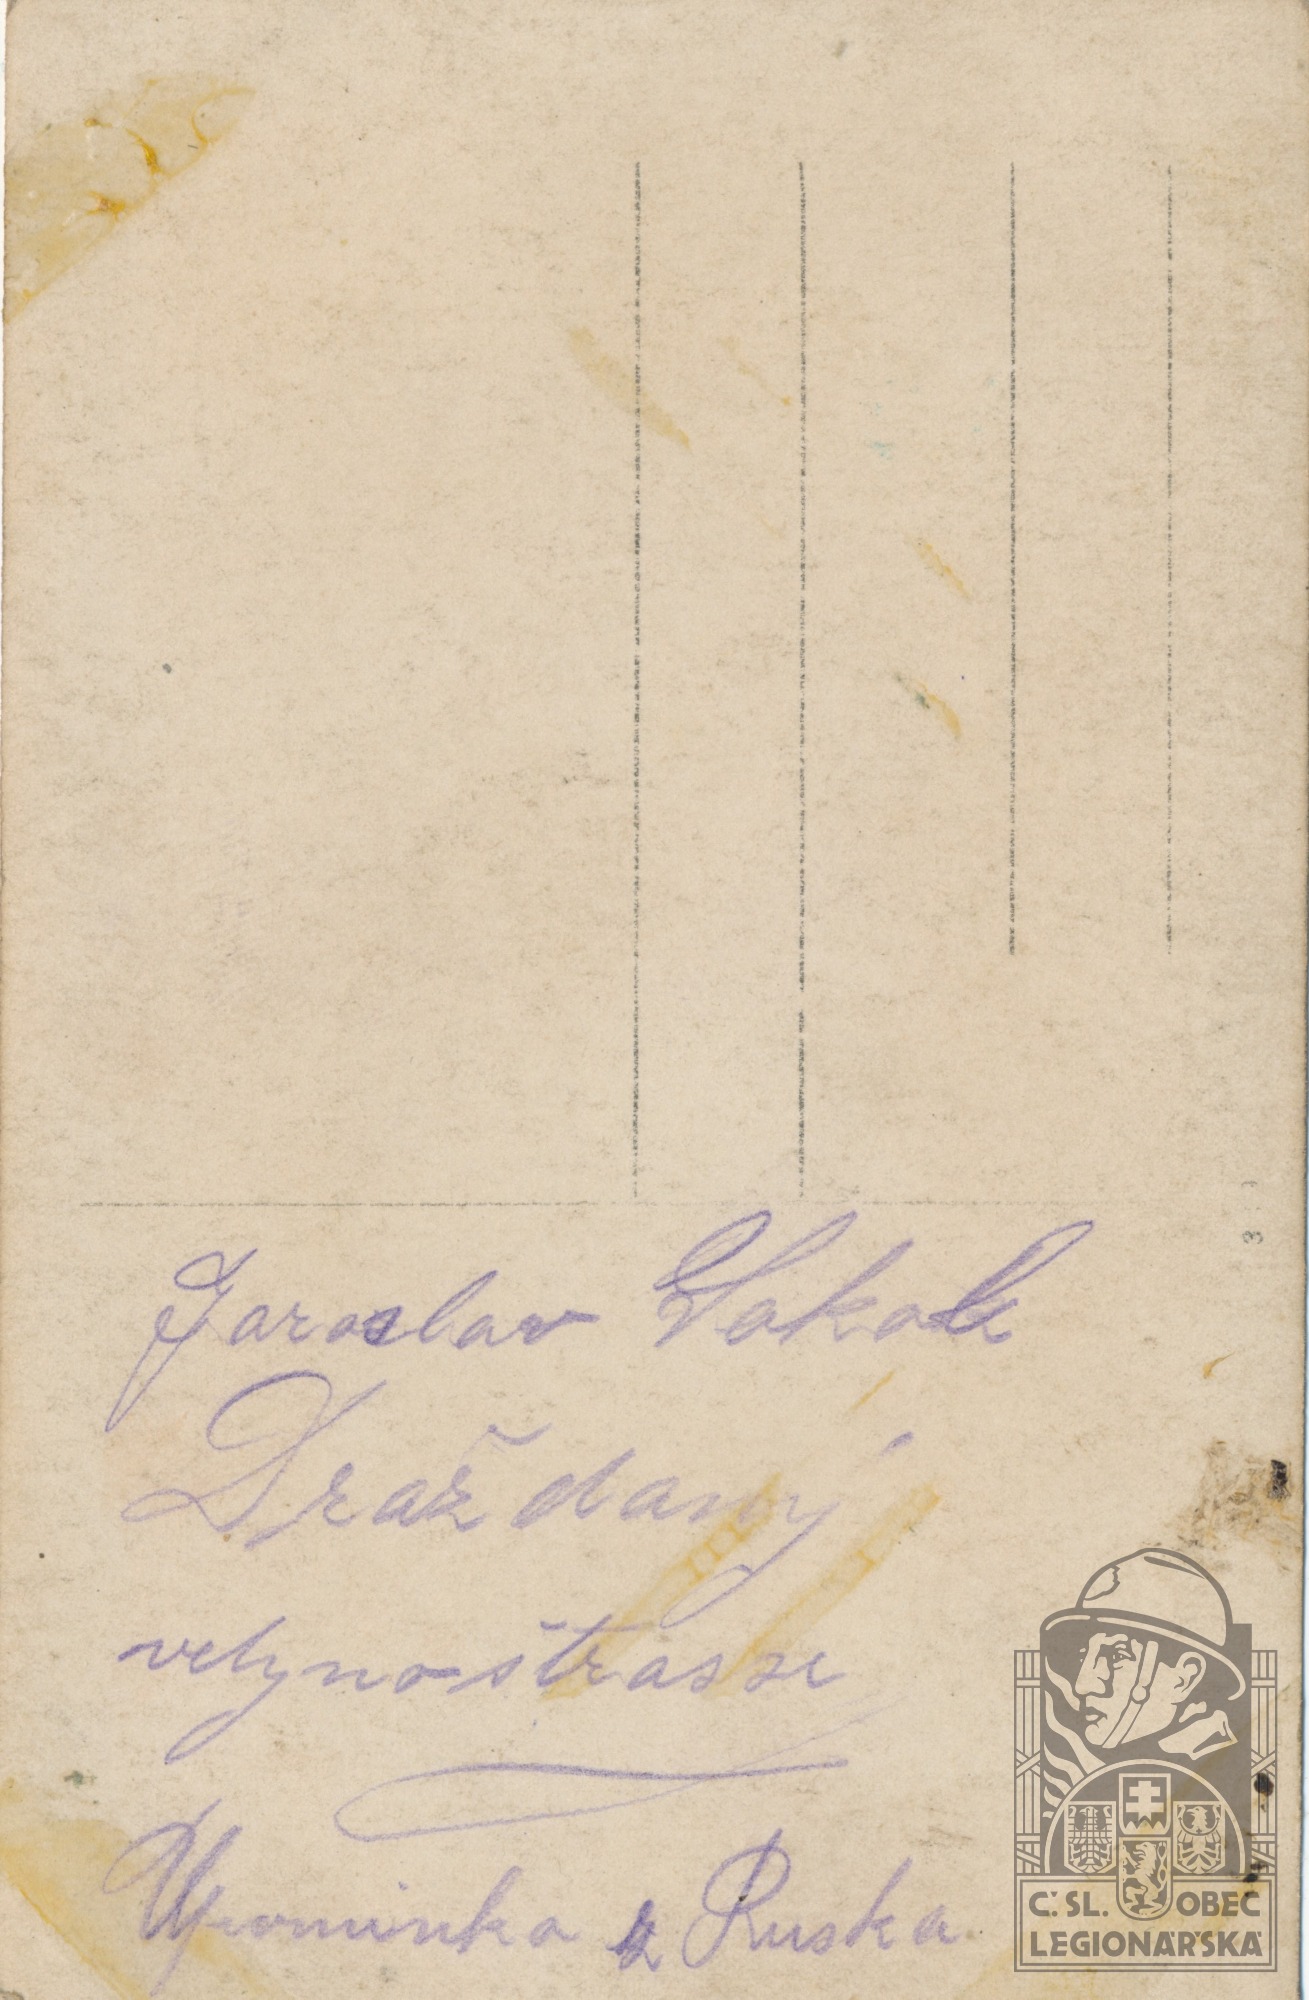 Jaroslav Sokol
Draždaný
velynoštrasse
Upomínka z Ruska
Č. SL. OBEC
LEGIONÁŘSKÁ
3